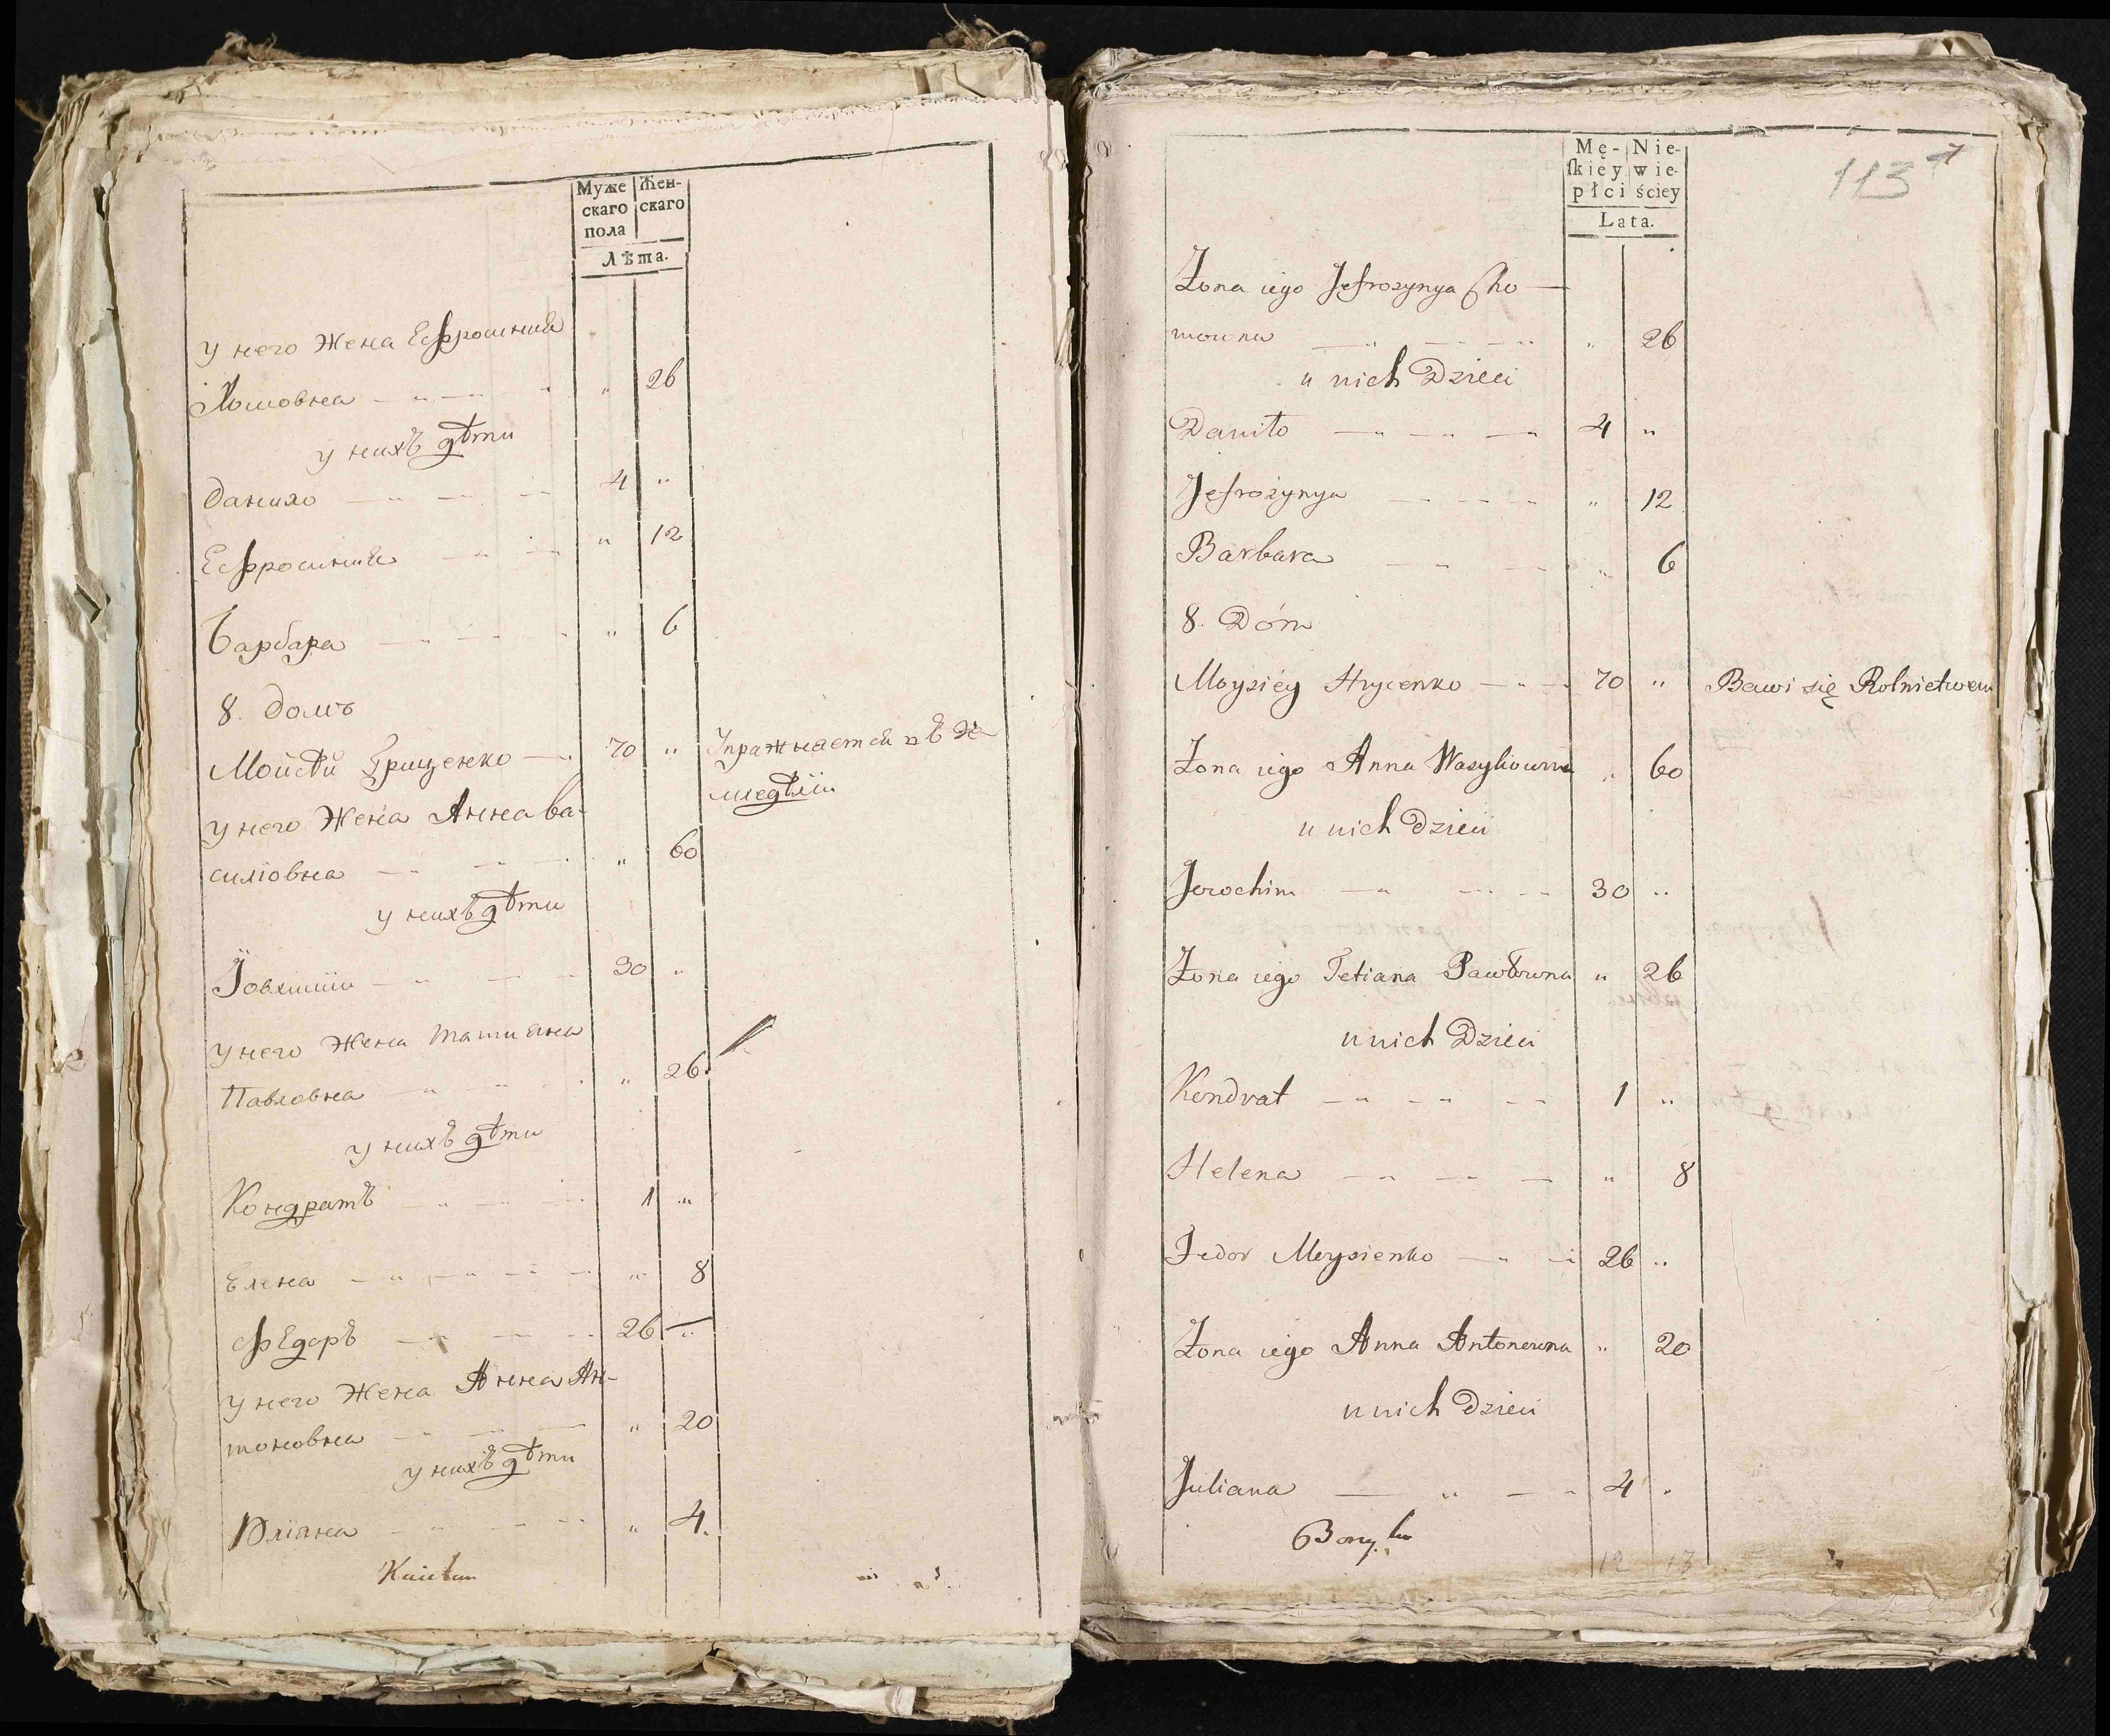 Муже
скаго
пола
Жен-
скаго
Лѣта.
у него Жена Ефросинія
Хомовна " 26
у нихъ дѣти
Данило 4 "
Ефросинія " 12
Барбара " 6
8. Домъ
Мойсѣй Гриценко 70 " Упражняется въ зе
мледѣліи
у него Жена Анна Ва-
силіовна " 60
у нихъ дѣти
30 "
у него Жена Татиана
Павловна " 26
у нихъ дѣти
Кондратъ 1 "
Елена " 8
Федоръ 26 "
у него Жена Анна Ан-
тоновна " 20
у нихъ дѣти
Юліяна " 4.
Mę-
skiéy
płci
Nie-
wie-
ściey
Lata.
113
Żona iego Jefrozynya Cho
mowna " 26
u nich Dzieci
Daniło 4 "
Jefrozynya " 12
Barbara " 6
8. Dóm
Moysiéy Hrycenko 70 " Bawi się Rolnictwem
Żona iego Anna Wasyliowna " 60
u nich Dzieci
Jerochim 30 "
Żona iego Tetiana Pawłowna " 26
u nich Dzieci
Kondrat 1 "
Helena " 8
Fedor Moysienko 26 "
Żona iego Anna Antonowna " 20
u nich Dzieci
Juliana 4 "
12 13